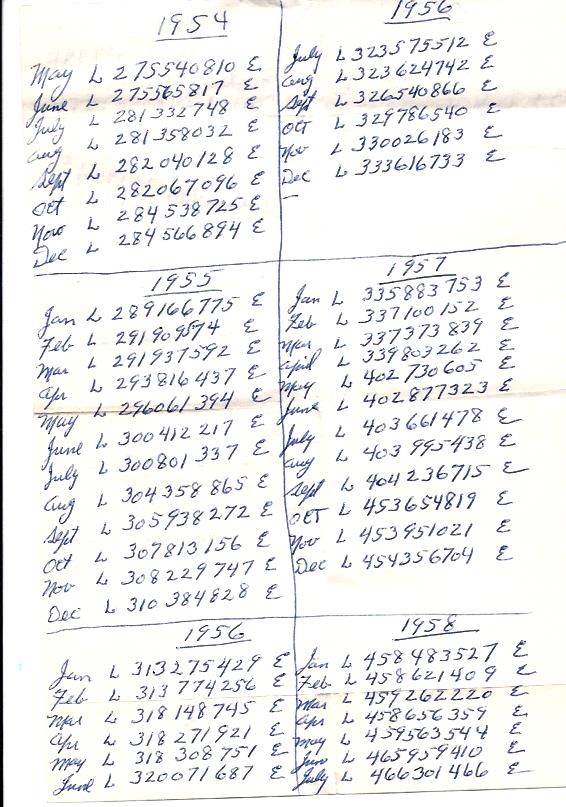 1954
May L 275540810 E
June L 275565817 E
July L 281332748 E
Aug L 281358032 E
Sept L 282040128 E
Oct L 282067096 E
Nov L 284538725 E
Dec L 284566894 E
1955
Jan L 289166775 E
Feb L 291909574 E
Mar L 291937592 E
Apr L 293816437 E
May L 296061394 E
June L 300412217 E
July L 300801337 E
Aug L 304358865 E
Sept L 305938272 E
Oct L 307813156 E
Nov L 308229747 E
Dec L 310384828 E
1956
Jan L 313275429 E
Feb L 313774256 E
Mar L 318148745 E
Apr L 318271921 E
May L 318308751 E
June L 320071687 E
1956
July L 323575512 E
Aug L 323624742 E
Sept L 326540866 E
Oct L 329786540 E
Nov L 330026183 E
Dec L 333616733 E
1957
Jan L 335883753 E
Feb L 337100152 E
Mar L 337373839 E
April L 339803262 E
May L 402730605 E
June L 402877323 E
July L 403661478 E
Aug L 403995438 E
Sept L 404236715 E
Oct L 453654819 E
Nov L 453951021 E
Dec L 454356704 E
1958
Jan L 458483527 E
Feb L 458621409 E
Mar L 459262220 E
Apr L 458656359 E
May L 459563544 E
Jun L 465959410 E
July L 466301466 E